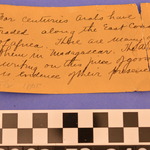 For centuries Arabs have
traded along the East Coast
of Africa. There are many of
them in Madagascar. The Arabic
writing on this piece of gourd
is evidence of their presence